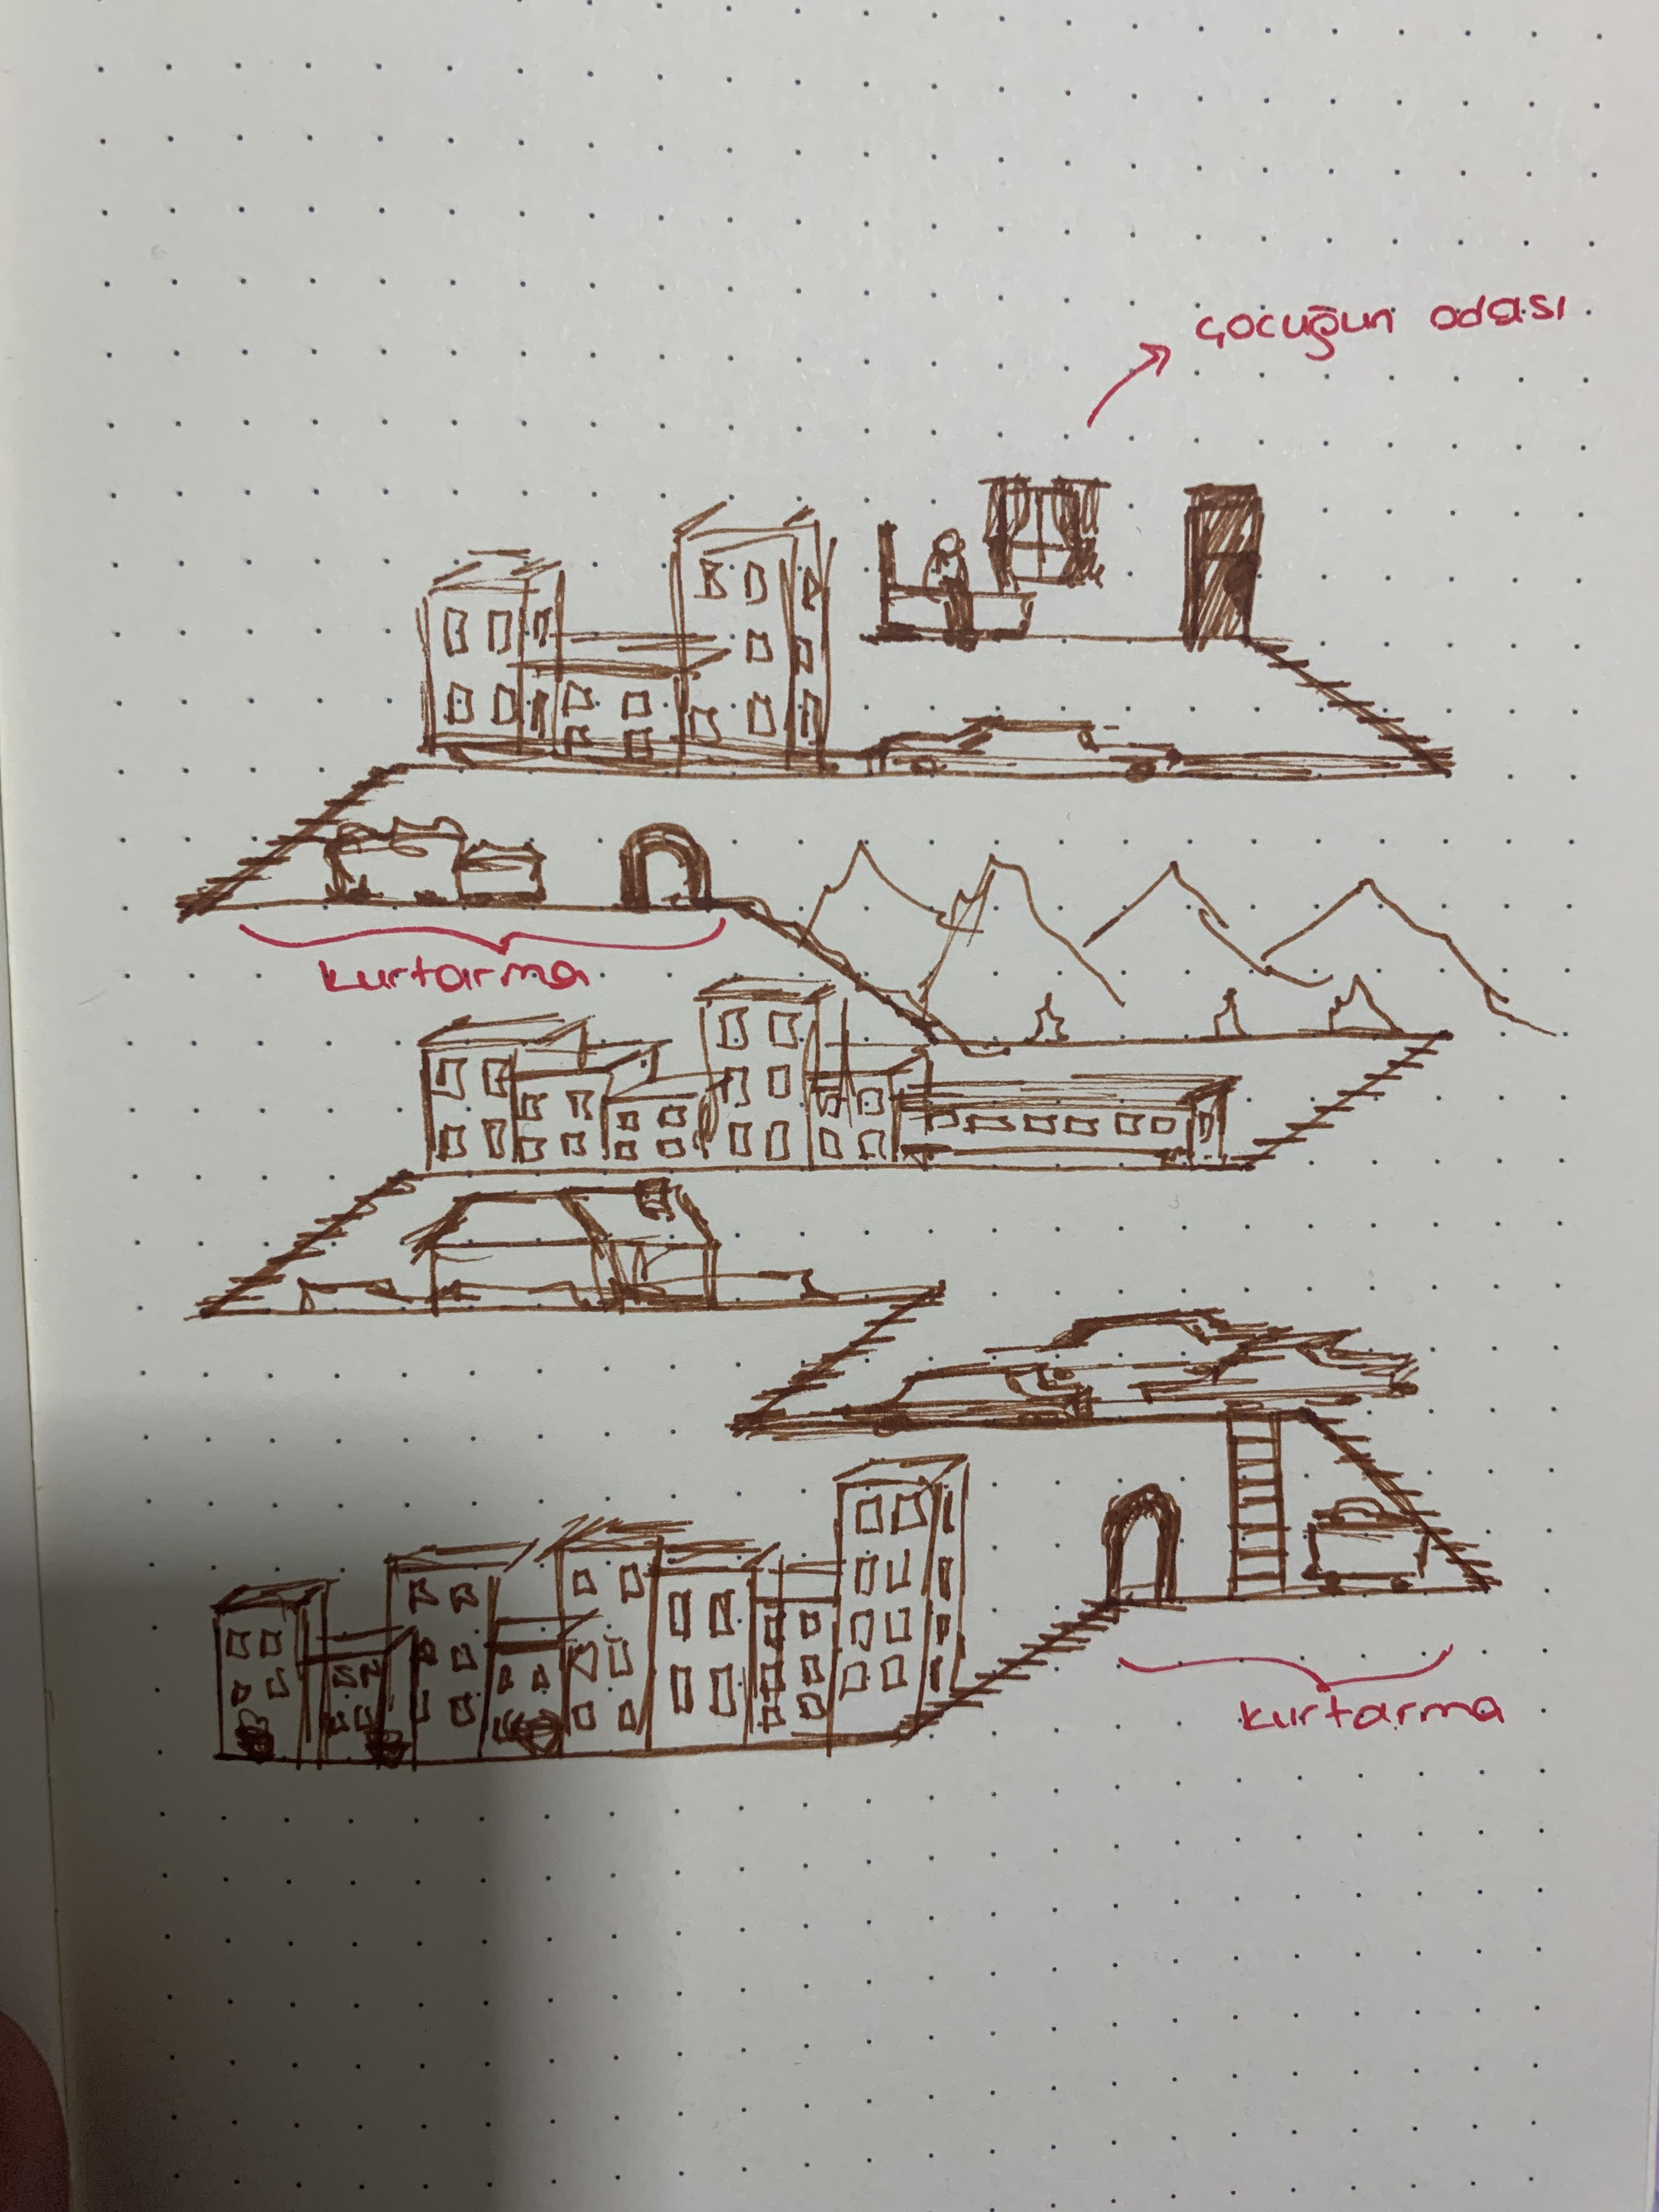 çocuğun odası
kurtarma
kurtarma